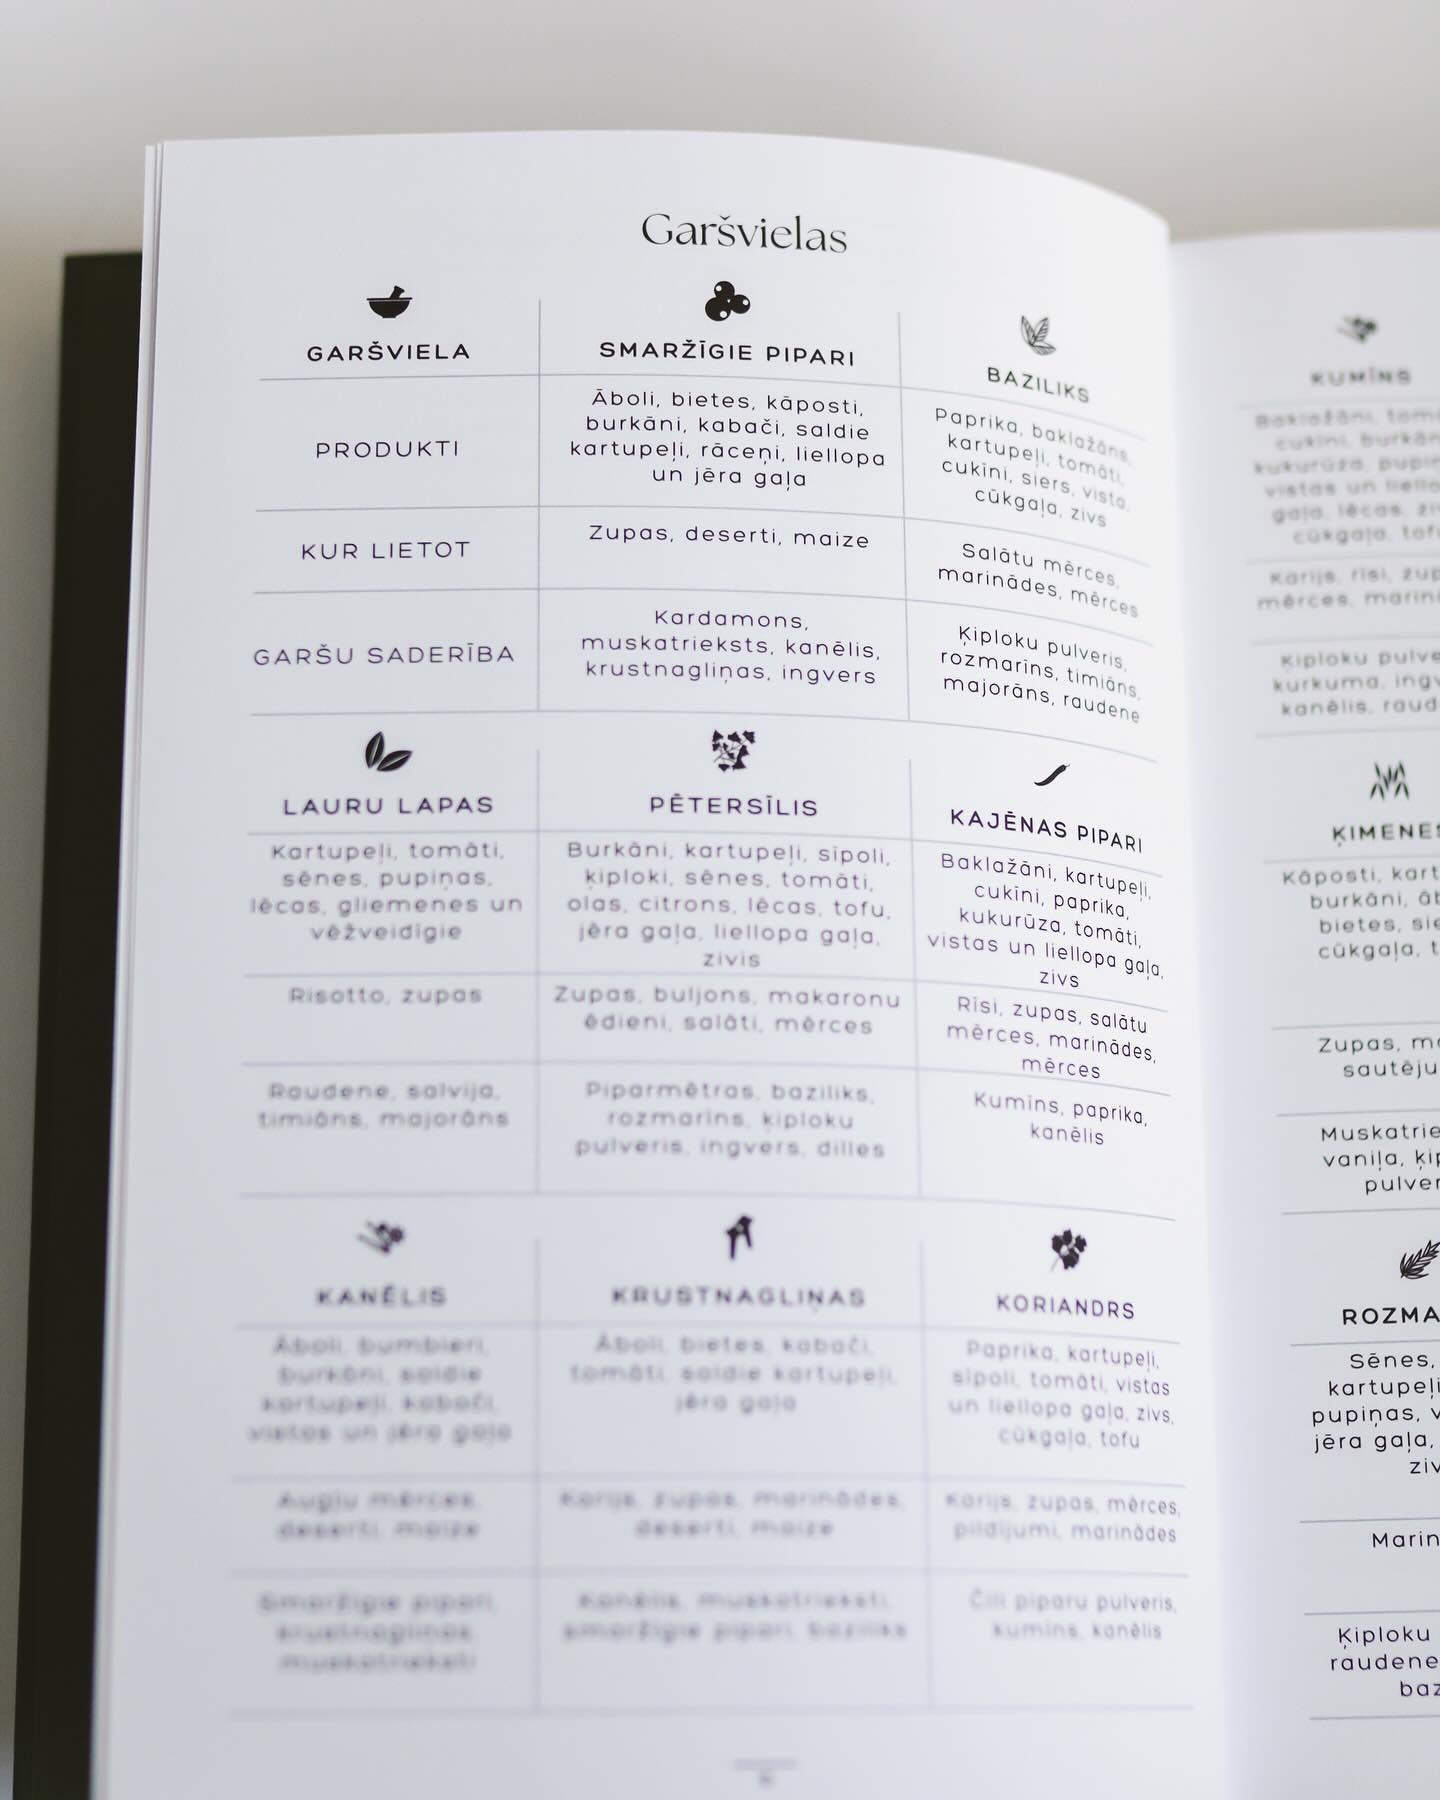 Garšvielas
GARŠVIELA
SMARŽĪGIE PIPARI
BAZILIKS
PRODUKTI
Āboli, bietes, kāposti,
burkāni, kabači, saldie
kartupeļi, rāceņi, liellopa
un jēra gaļa
Paprika, baklažāns,
kartupeļi, tomāti,
cukīni, siers, vista,
cūkgaļa, zivs
KUR LIETOT
Zupas, deserti, maize
Salātu mērces,
marinādes, mērces
GARŠU SADERĪBA
Kardamons,
muskatrieksts, kanēlis,
krustnagliņas, ingvers
Ķiploku pulveris,
rozmarīns, timiāns,
majorāns, raudene
LAURU LAPAS
PĒTERSĪLIS
KAJĒNAS PIPARI
Kartupeļi, tomāti,
sēnes, pupiņas,
lēcas, gliemenes un
vēžveidīgie
Burkāni, kartupeļi, sīpoli,
ķiploki, sēnes, tomāti,
olas, citrons, lēcas, tofu,
jēra gaļa, liellopa gaļa,
zivis
Baklažāni, kartupeļi,
cukīni, paprika,
kukurūza, tomāti,
vistas un liellopa gaļa,
zivs
Risotto, zupas
Zupas, buljons, makaronu
ēdieni, salāti, mērces
Rīsi, zupas, salātu
mērces, marinādes,
mērces
Raudene, salvija,
timiāns, majorāns
Piparmētras, baziliks,
rozmarīns, ķiploku
pulveris, ingvers, dilles
Kumīns, paprika,
kanēlis
KANĒLIS
KRUSTNAGLIŅAS
KORIANDRS
Āboli, bumbieri,
burkāni, saldie
kartupeļi, kabači,
vistas un jēra gaļa
Āboli, bietes, kabači,
tomāti, saldie kartupeļi,
jēra gaļa
Paprika, kartupeļi,
sīpoli, tomāti, vistas
un liellopa gaļa, zivs,
cūkgaļa, tofu
Augļu mērces,
deserti, maize
Karijs, zupas, marinādes,
deserti, maize
Karijs, zupas, mērces,
pildījumi, marinādes
Smaržīgie pipari,
krustnagliņas,
muskatrieksti
Kanēlis, muskatrieksti,
smaržīgie pipari, baziliks
Čili piparu pulveris,
kumīns, kanēlis
KUMĪNS
Baklažāni, tom
cukīni, burkān
kukurūza, pupiņ
vistas un liello
gaļa, lēcas, ziv
cūkgaļa, tof
Karijs, rīsi, zup
mērces, marin
Ķiploku pulve
kurkuma, ing
kanēlis, raud
ĶIMENES
Kāposti, kart
burkāni, āb
bietes, sie
cūkgaļa, t
Zupas, ma
sautēju
Muskatrie
vaniļa, ķip
pulver
ROZMA
Sēnes,
kartupeļi
pupiņas, v
jēra gaļa,
ziv
Marin
Ķiploku
raudene
baz